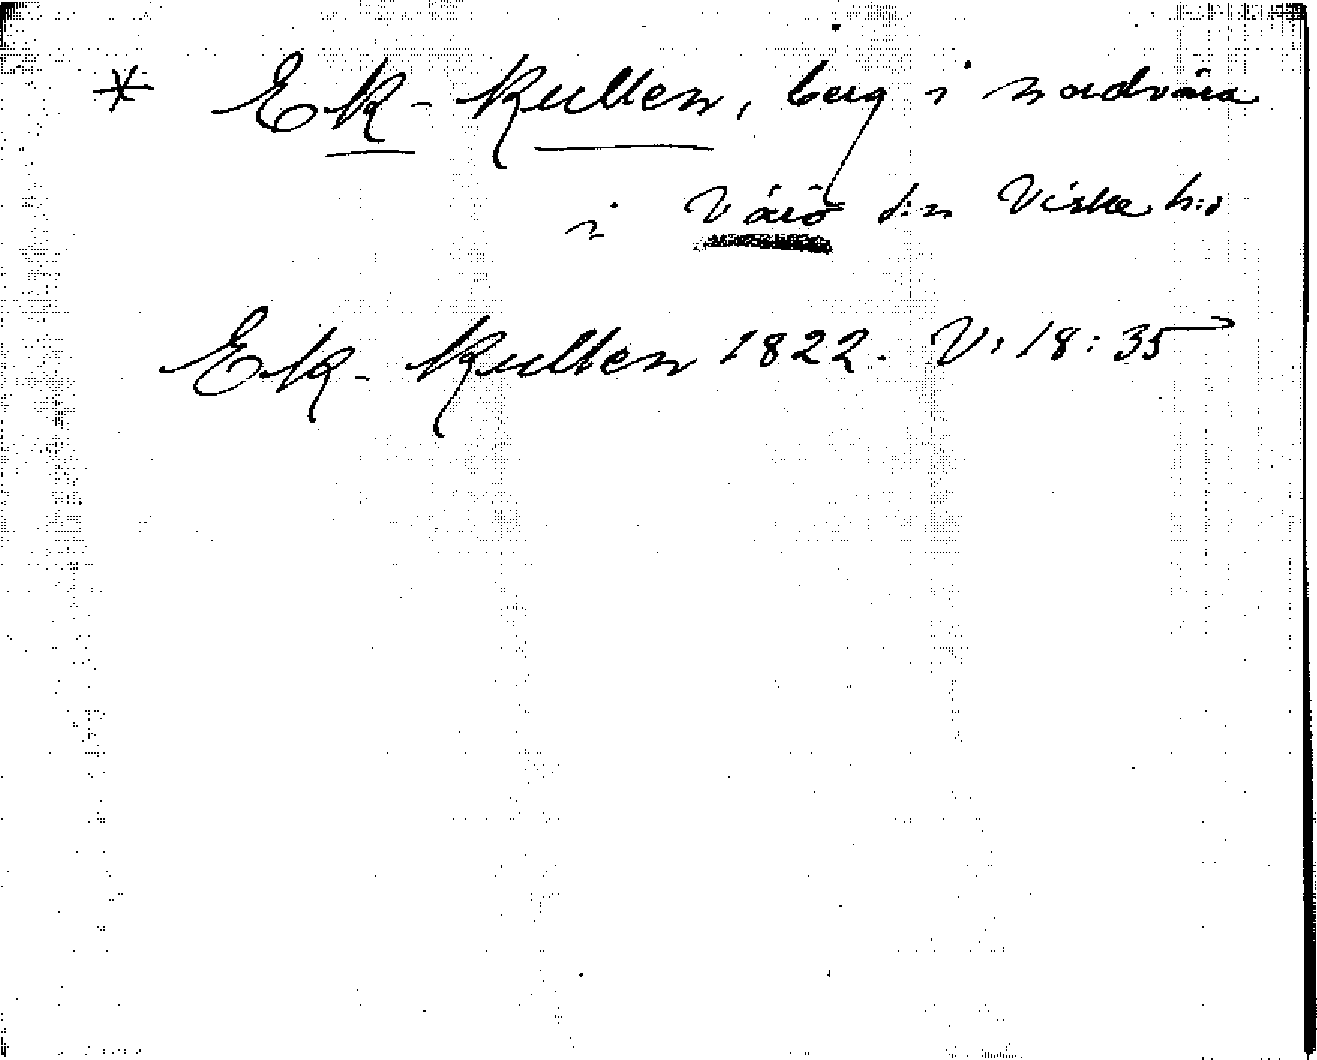 * Ek-Kullen, berg i nordvära
i Värö s:n Viske h:d
Ek-Kullen 1822. V: 18: 35